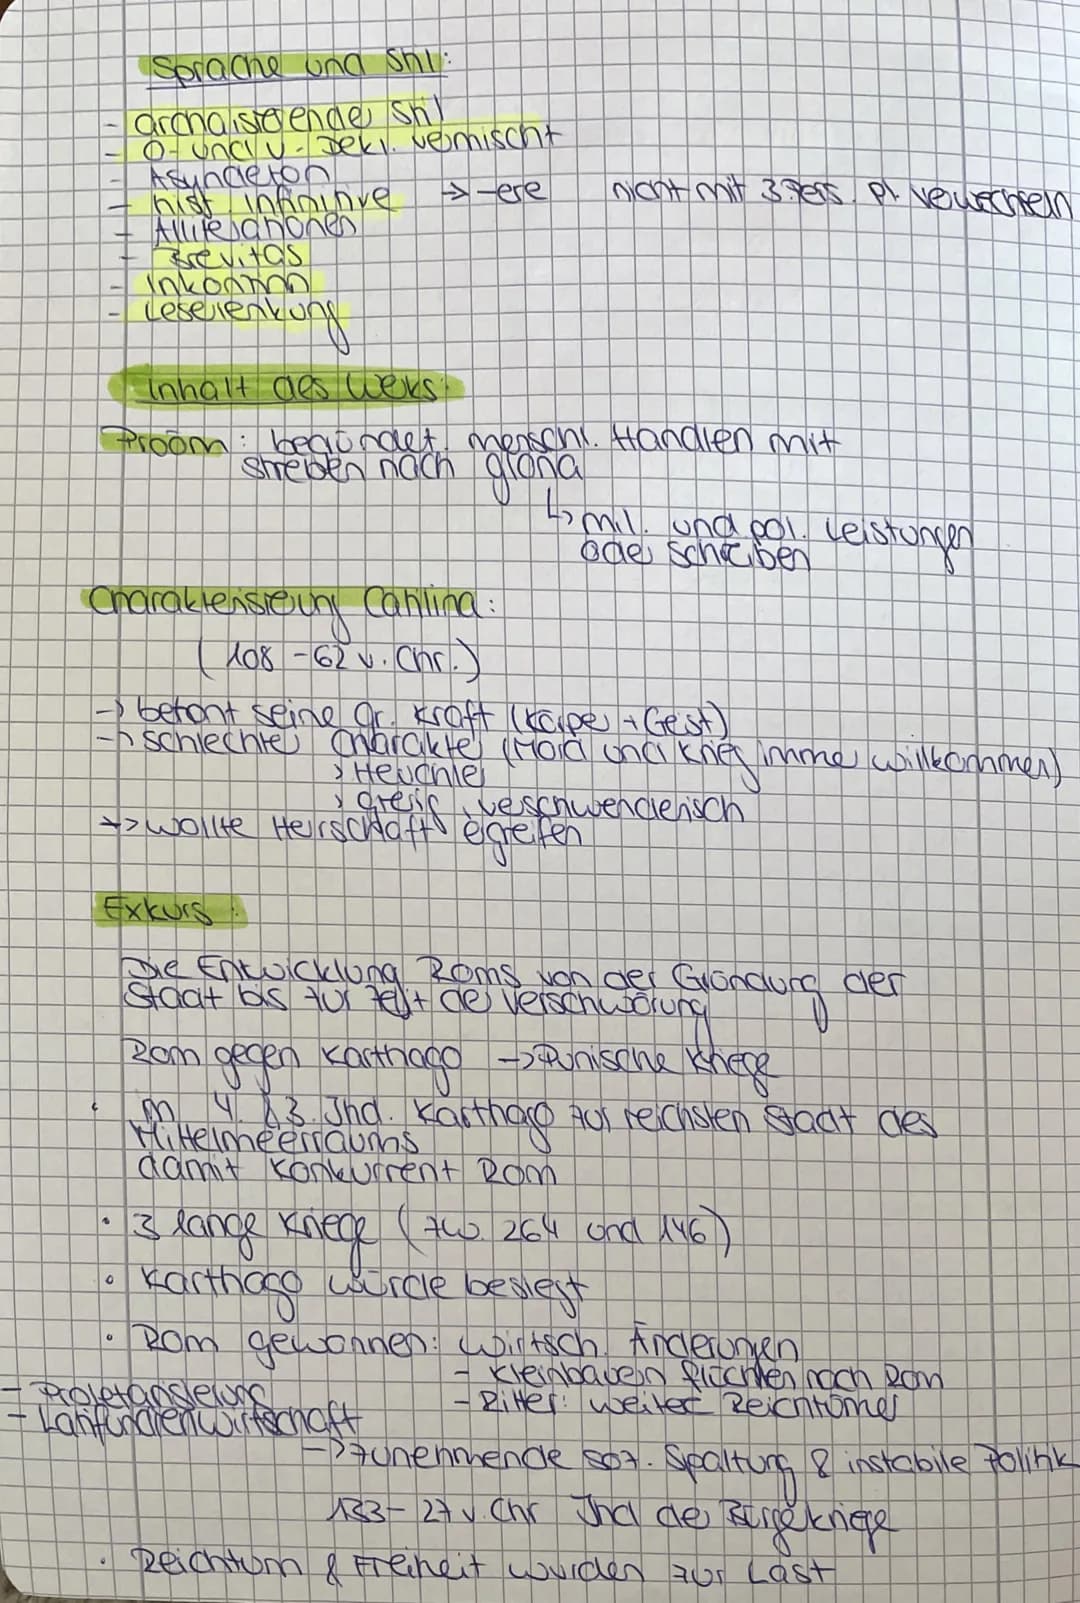 Sprache und Stil:
- archaisierende Stil
- O- und U- Dekl. vermischt
- Asyndeton
- hist. Infinitive → -ere nicht mit 3. Pers. Pl verwechseln
- Alliterationen
- Brevitas
- Inkonzinn
- Leserlenkung
Inhalt des Werks:
Proöm: begründet, menschl. Handlen mit
streben nach gloria
↳ mil. und pol. Leistungen
oder schreiben
Charakterisierung Catilina:
(108 - 62 v. Chr.)
→ betont seine gr. Kraft (Körper + Geist)
→ schlechter Charakter (Mord und Krieg immer willkommen)
> Heuchler
> gierig, verschwenderisch
→ wollte Herrschaft ergreifen
Exkurs:
Die Entwicklung Roms von der Gründung der
Staat bis zur Zeit der Verschwörung
Rom gegen Karthago → Punische Kriege
• Im 4. & 3. Jhd. Karthago zur reichsten Stadt des
Mittelmeerraums
damit Konkurrent Rom
• 3 lange Kriege (zw. 264 und 146)
• Karthago wurde besiegt
• Rom gewonnen: wirtsch. Änderungen
- Kleinbauern flüchten nach Rom
- Proletarisierung
- Ritter: weiter Reichtümer
- Latifundienwirtschaft
→ zunehmende soz. Spaltung & instabile Politik
133 - 27 v. Chr Jhd der Bürgekriege
• Reichtum & Freiheit wurden zur Last